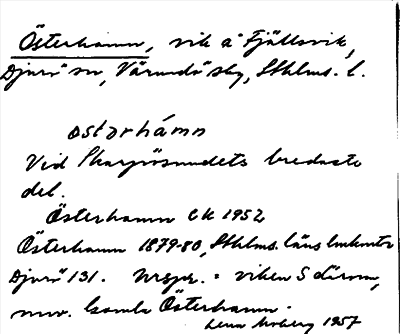 Österhamn, vik å Fjällsvik,
Djurö sn, Värmdö skg, Sthlms. l.
ostarhámn
Vid Skarpösundets bredaste
del.
Österhamn EK 1952
Österhamn 1879-80, Sthlms. läns
Djurö 131. Urspr. = viken S därom,
nuv. Gamla Österhamn.
1957